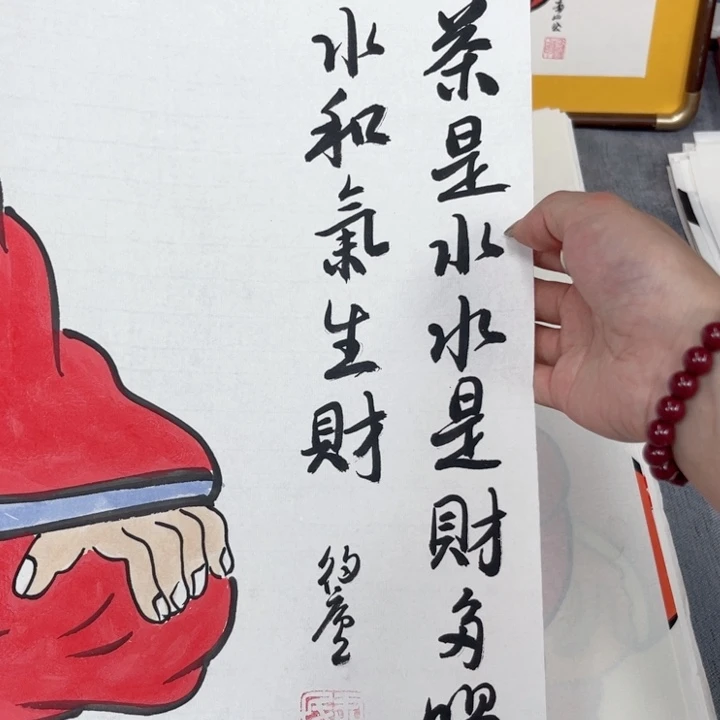 茶是水水是財多喝
水和氣生財